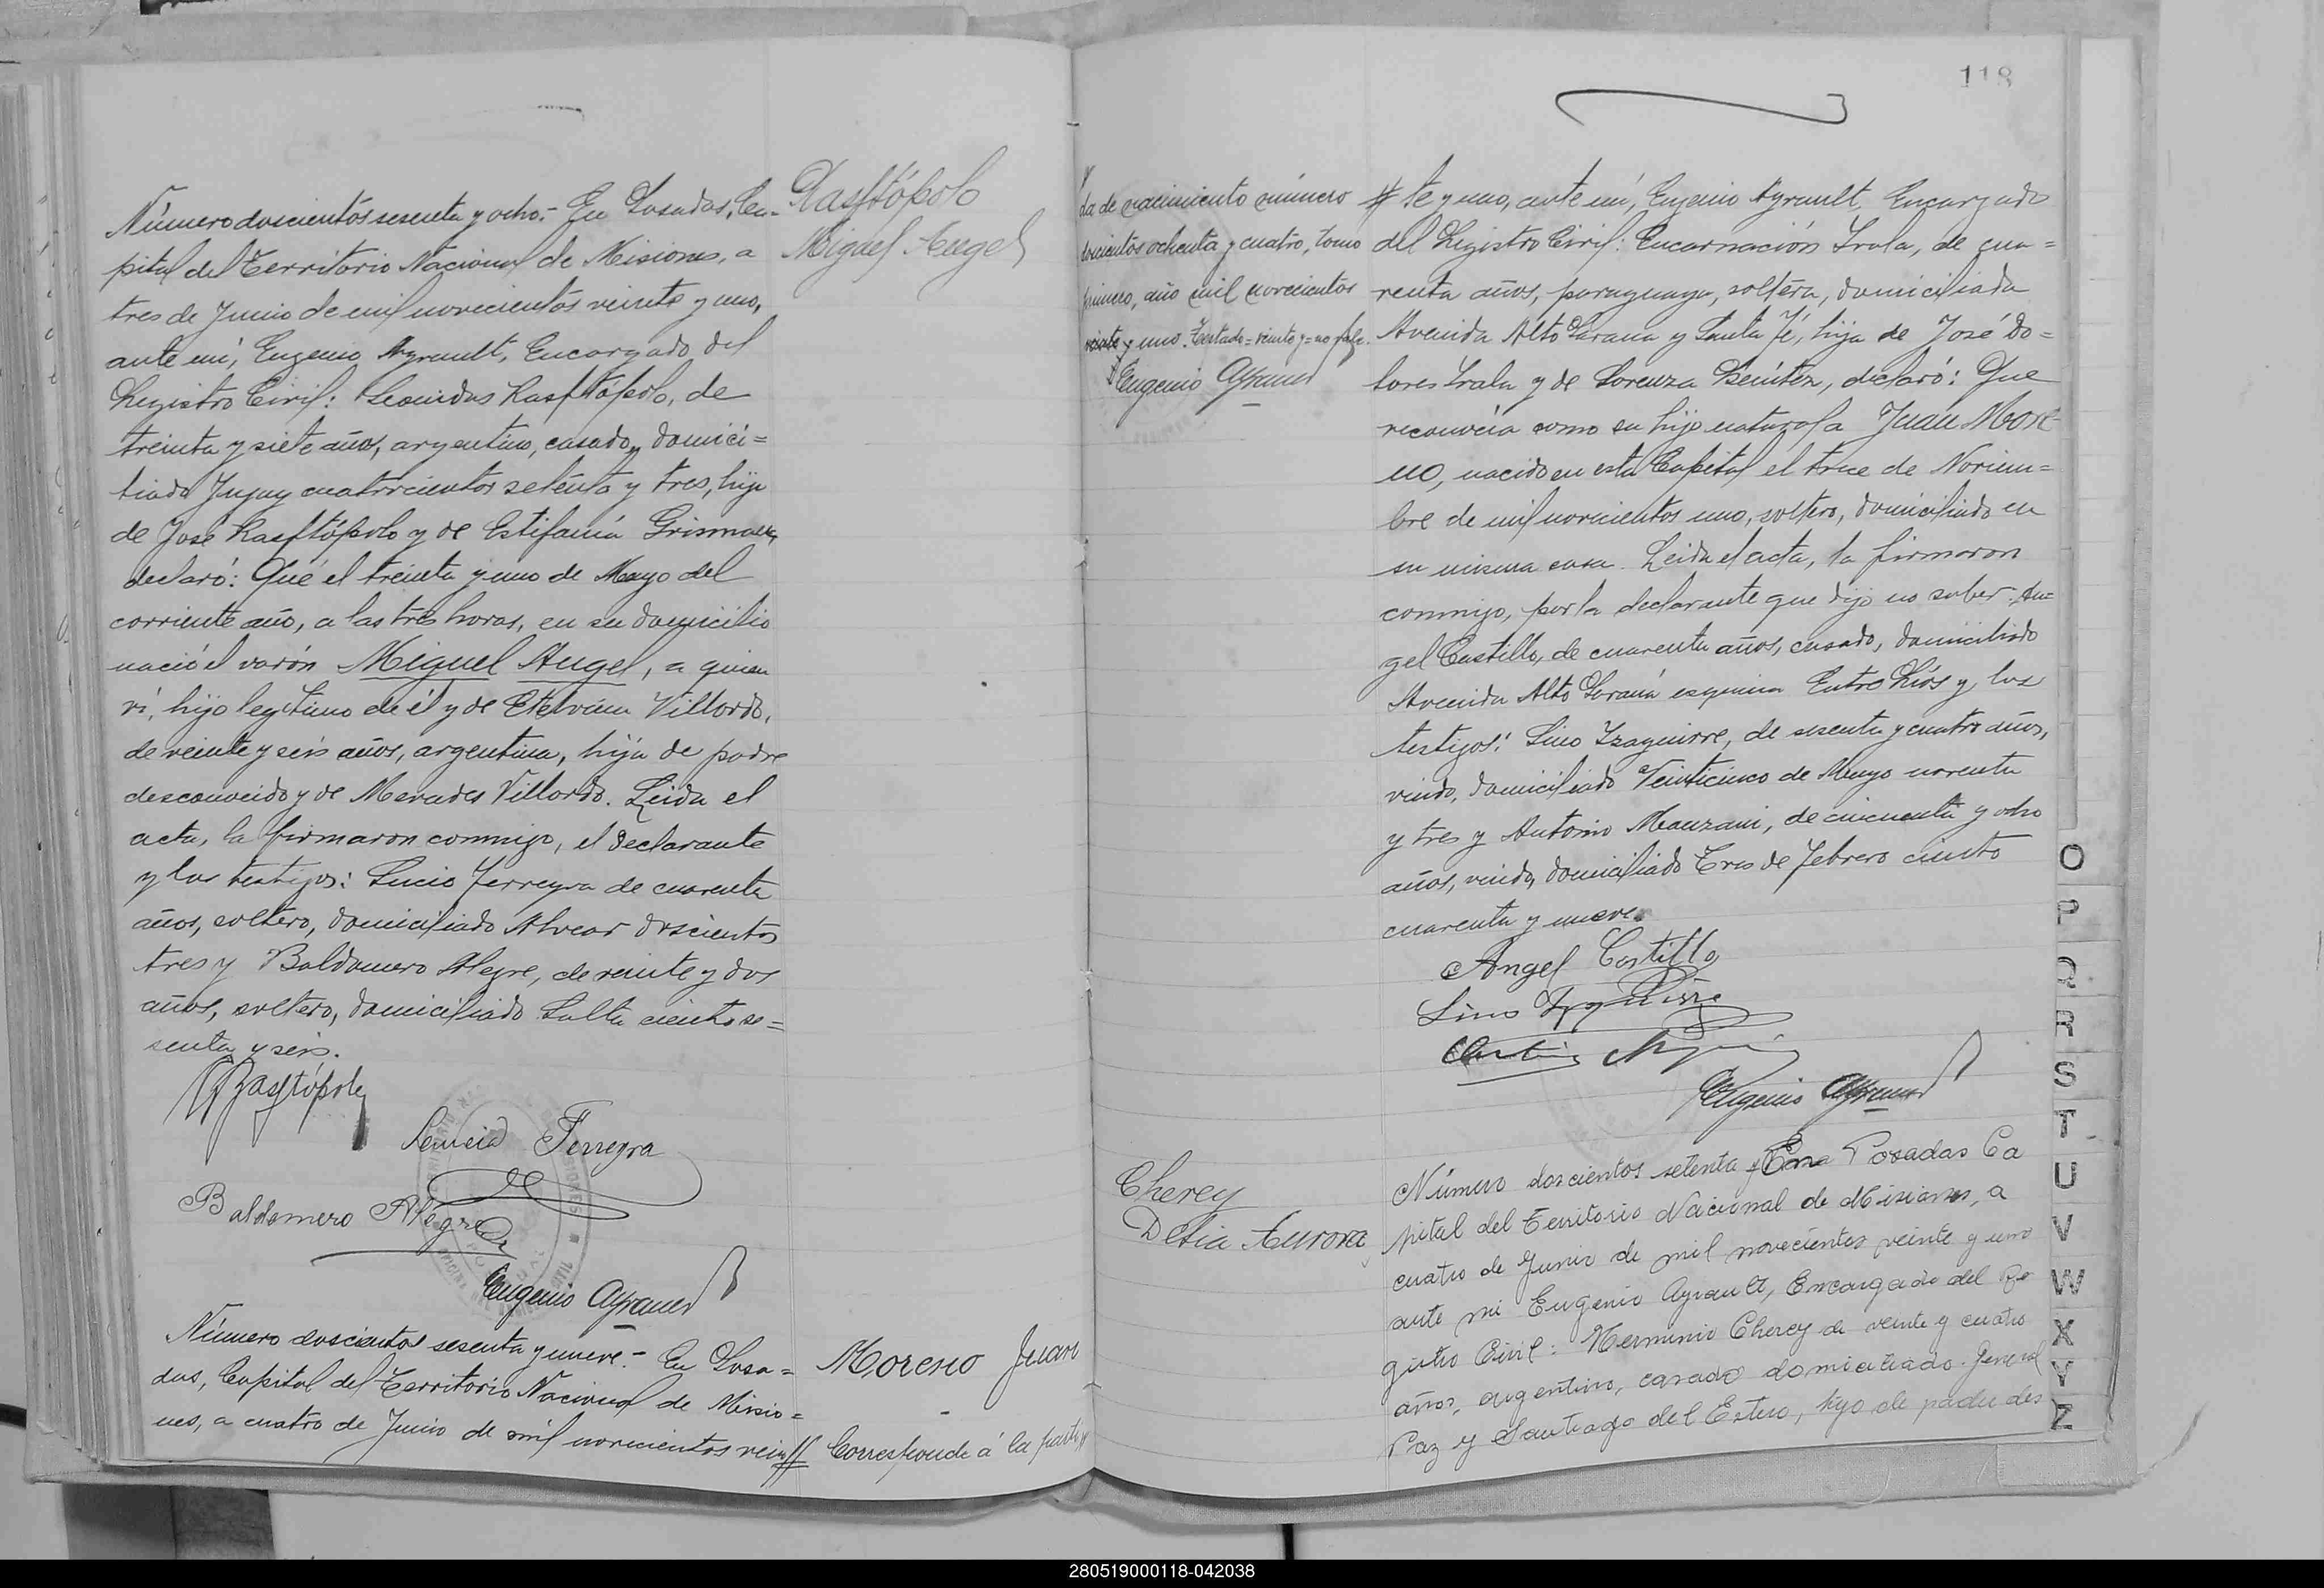 Número doscientos sesenta y ocho.- En Posadas, Ca-
pital del Territorio Nacional de Misiones, a
tres de Junio de mil novecientos veinte y uno,
ante mí, Eugenio Ayrault, Encargado del
Registro Civil: Leonidas Rasftópolo, de
treinta y siete años, argentino, casado, domici=
liado Jujuy cuatrocientos setenta y tres, hijo
de José Rasftópolo y de Estifanía
declaró: Que el treinta y uno de Mayo del
corriente año, a las tres horas, en su domicilio
nació el varón Miguel Angel, a quien
ví, hijo legítimo de él y de Etelvina Villordo,
de veinte y seis años, argentina, hija de padre
desconocido y de Mercedes Villordo. Leida el
acta, la firmaron conmigo, el declarante
y los testigos: Lucio Ferreyra de cuarenta
años, soltero, domiciliado Alvear doscientos
tres y Baldomero Alegre, de veinte y dos
años, soltero, domiciliado Salta ciento se=
senta y seis.
Rasftópolo
Ferreyra
Baldomero Alegre
Eugenio Ayrault
Rasftópolo
Miguel Angel
Número doscientos sesenta y nueve.- En Posa=
das, Capital del Territorio Nacional de Misio=
nes, a cuatro de Junio de mil novecientos vein#
Moreno Juan
Corresponde á la parti
118
da de nacimiento número
doscientos ochenta y cuatro, tomo
primero, año mil novecientos
veinte y uno. Testado=veinte y=no vale.
Eugenio Ayrault
# te y uno, ante mí, Eugenio Ayrault, Encargado
del Registro Civil: Encarnación Irala, de cua=
renta años, paraguaya, soltera, domiciliada
Avenida Alto Paraná y Santa Fé, hija de José Do=
lores Irala y de Lorenza Benítez, declaró: Que
reconocía como su hijo natural a Juan More
no, nacido en esta Capital el trece de Noviem=
bre de mil novecientos uno, soltero, domiciliado en
su misma casa. Leida el acta, la firmaron
conmigo, por la declarante que dijo no saber: An=
gel Castillo, de cuarenta años, casado, domiciliado
Avenida Alto Paraná esquina Entre Ríos y los
testigos: Lino Yzaguirre, de sesenta y cuatro años,
viudo, domiciliado Veinticinco de Mayo noventa
y tres y Antonio Manzani, de cincuenta y ocho
años, viudo, domiciliado Tres de Febrero ciento
cuarenta y nueve.
Angel Castillo
Lino Yzaguirre
Eugenio Ayrault
Cherey
Delia Aurora
Número doscientos setenta En Posadas Ca
pital del Territorio Nacional de Misiones, a
cuatro de Junio de mil novecientos veinte y uno
ante mi Eugenio Ayrault, Encargado del Re
gistro Civil: Herminio Cherey de veinte y cuatro
años, argentino, casado domiciliado General
Paz y Santiago del Estero, hijo de padre des
O
P
Q
R
S
T
U
V
W
X
Y
Z
280519000118-042038